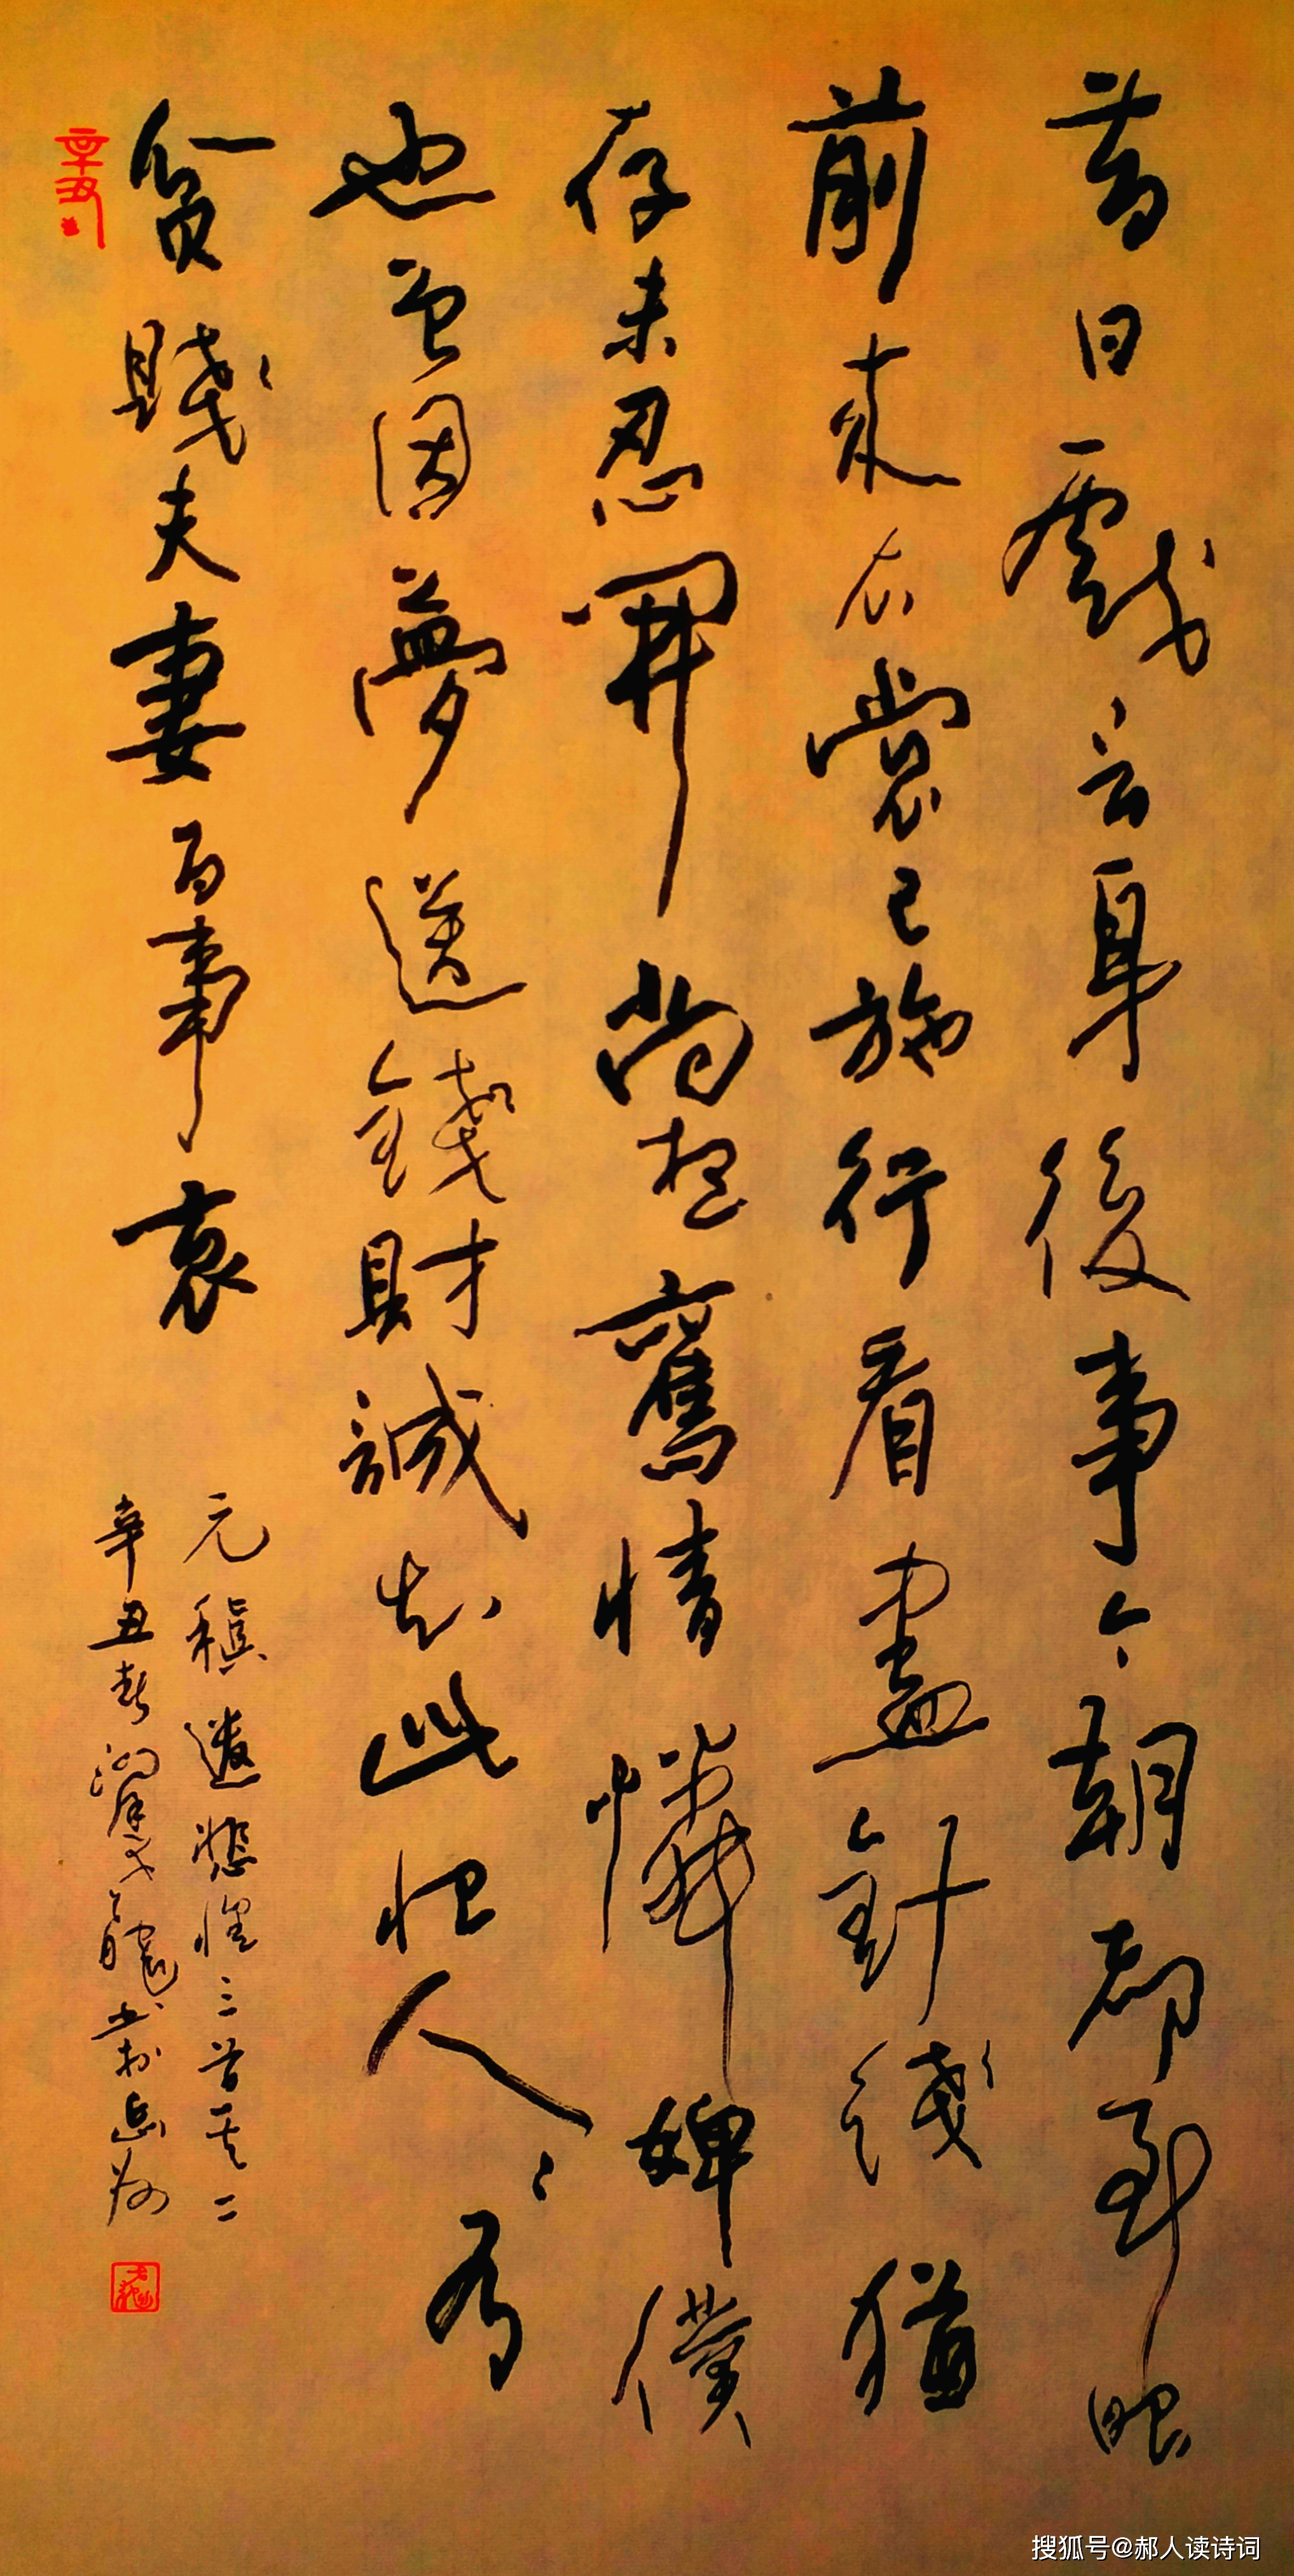 昔日戲言身後事今朝都到眼
前來衣裳已施行看盡針綫猶
存未忍開尚想舊情憐婢僕
也曾因夢送錢財誠知此恨人人有
貧賤夫妻百事哀
元稹遣悲懷三首其二
辛丑春
書於岳州
辛丑
搜狐号@郝人读诗词